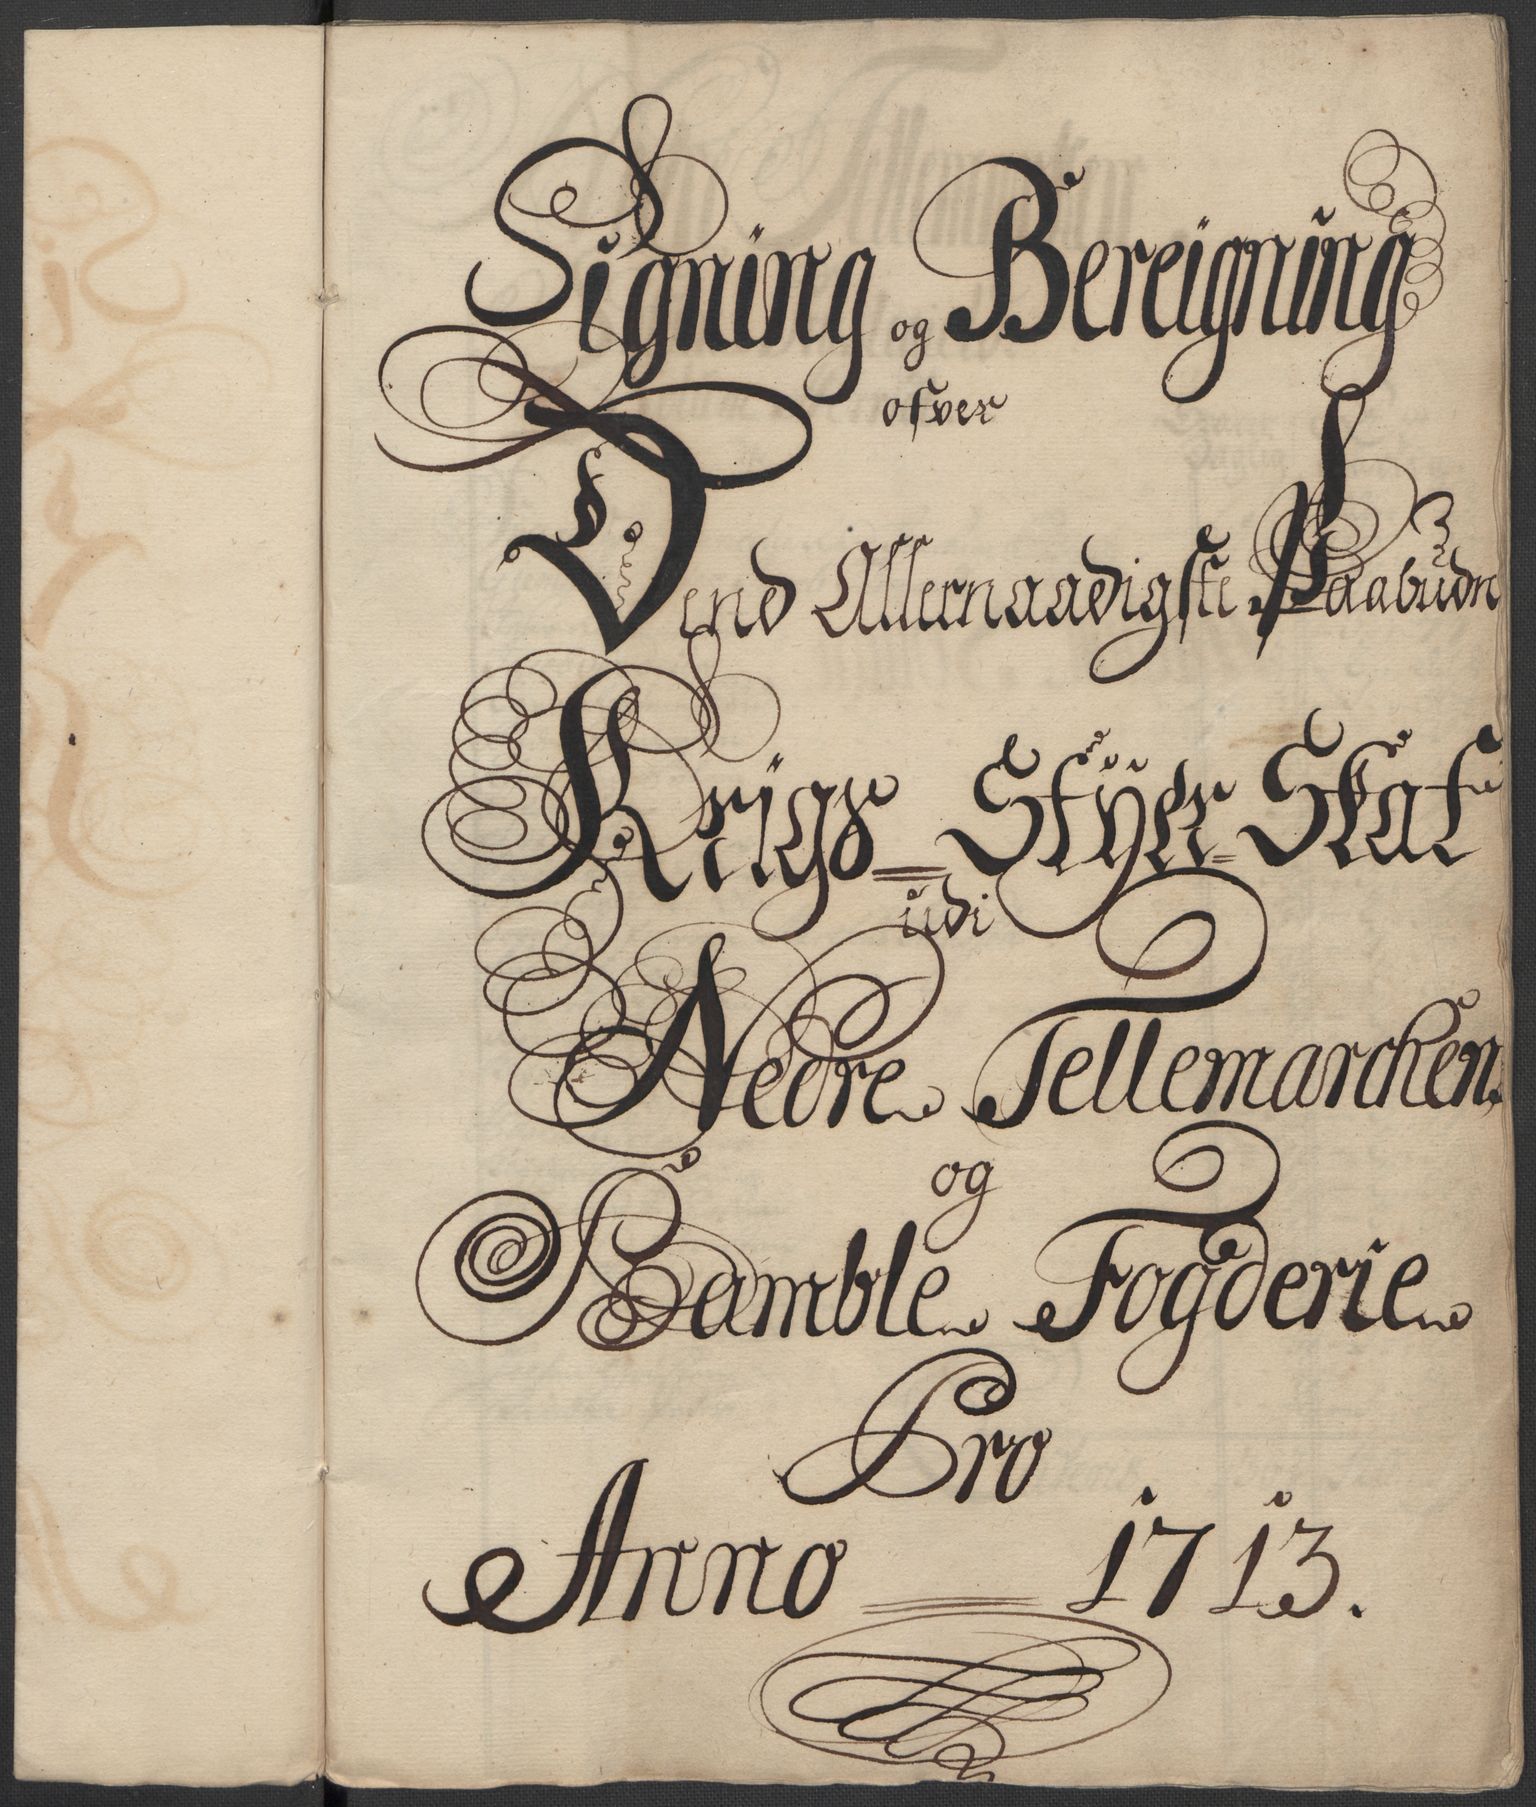 Signing og Bereigning
ofver
Dend Allernaadigste Paabudn
Krigs = Styr = Skat
udi
Nedre Tellemarchen
og
Bamble Fogderie
Pro
Anno = 1713.